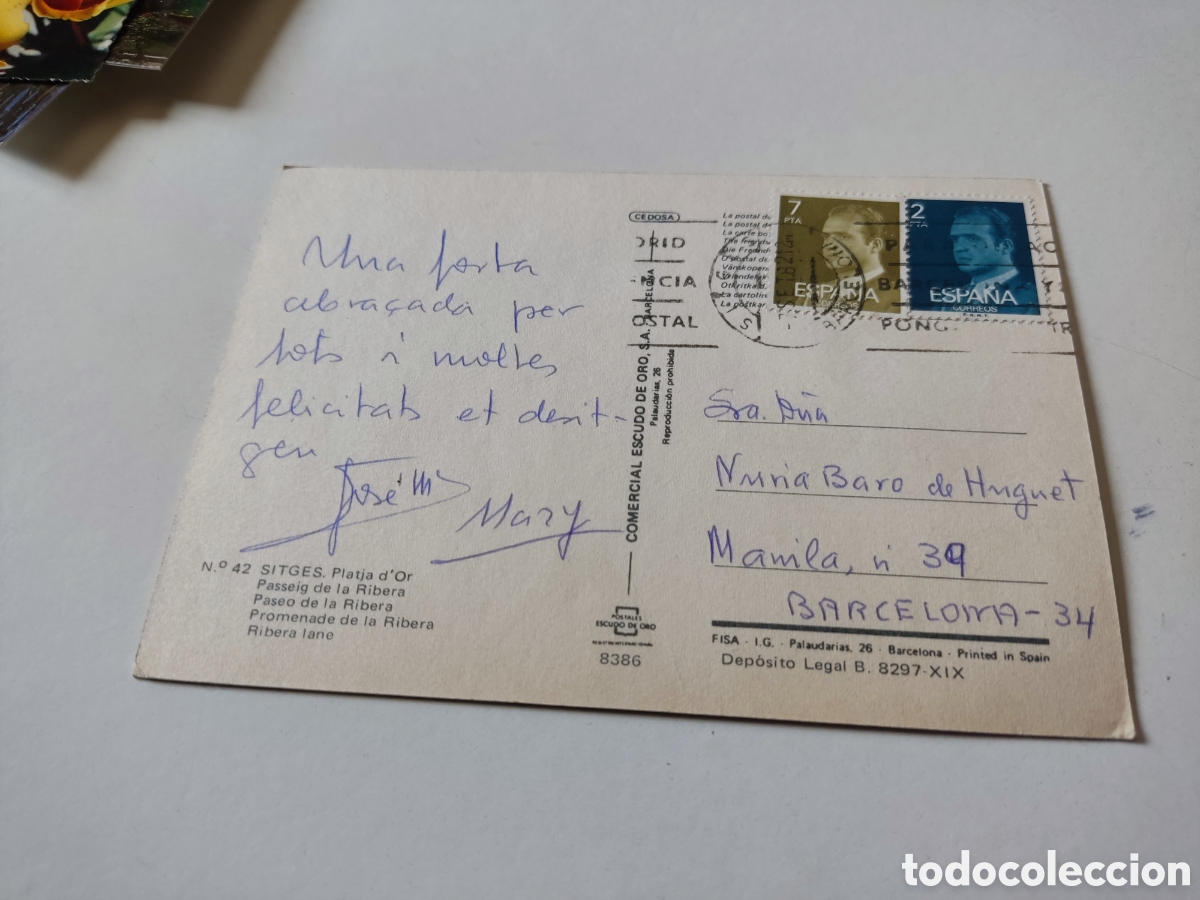 Una forta
abraçada per
tots i moltes
felicitats et desit-
gen
José Mª
Mary
N.º 42 SITGES. Platja d'Or
Passeig de la Ribera
Paseo de la Ribera
Promenade de la Ribera
Ribera lane
CEDOSA
COMERCIAL ESCUDO DE ORO, S.A. BARCELONA
Palaudarias, 26
Reproducción prohibida
POSTALES
ESCUDO DE ORO
8386
DRID
NCIA
OSTAL
La postal de
7
PTA
ESPAÑA
2
PTA
ESPAÑA
CORREOS
PONG
Sra. Dña
Nuria Baro de Huguet
Manila, n 39
BARCELONA-34
FISA - I.G. - Palaudarias, 26 - Barcelona - Printed in Spain
Depósito Legal B. 8297-XIX
todocoleccion